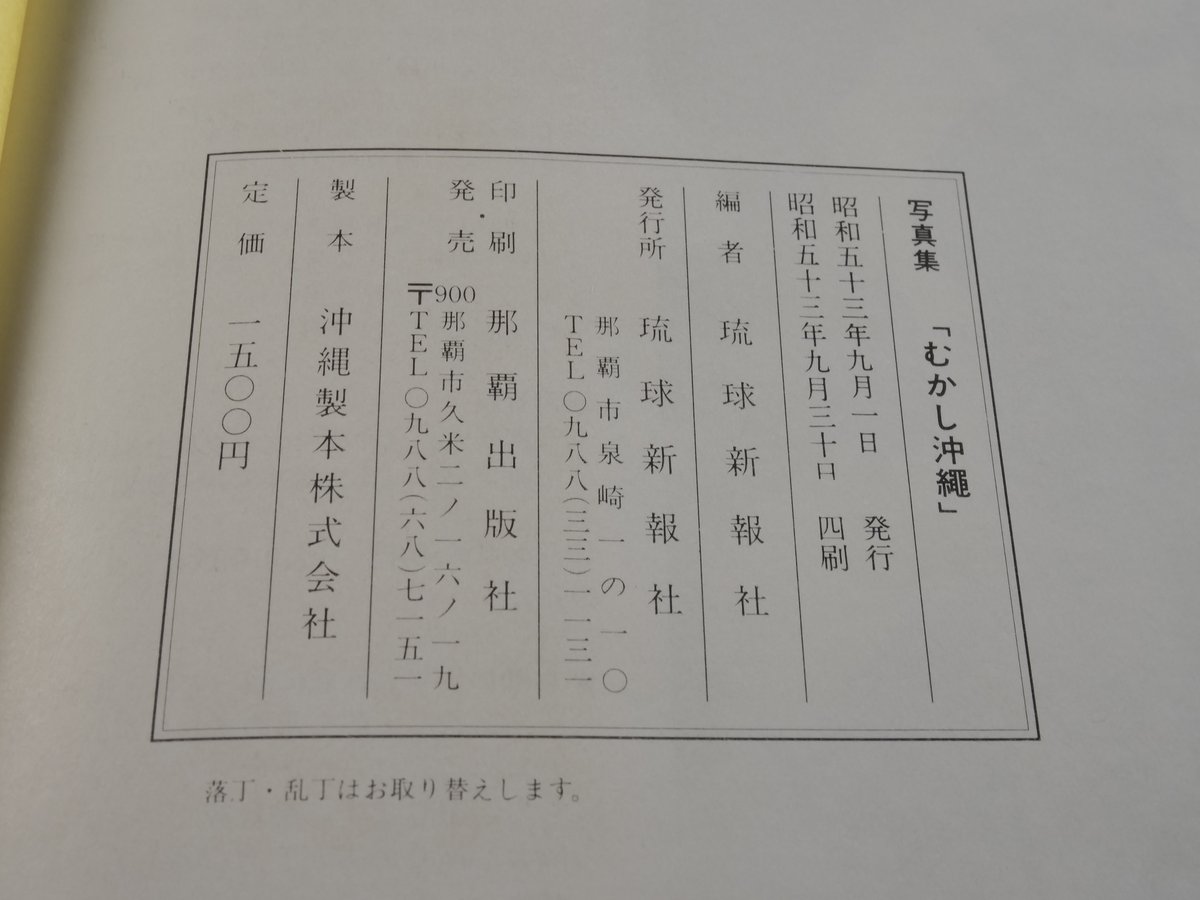 写真集 「むかし沖繩」
昭和五十三年九月一日 発行
昭和五十三年九月三十日 四刷
編者 琉球新報社
発行所 琉球新報社
那覇市泉崎一の一〇
TEL〇九八八(三三)一一三一
印刷・発売 那覇出版社
〒900 那覇市久米二ノ一六ノ一九
TEL〇九八八(六八)七一五一
製本 沖縄製本株式会社
定価 一五〇〇円
落丁・乱丁はお取り替えします。